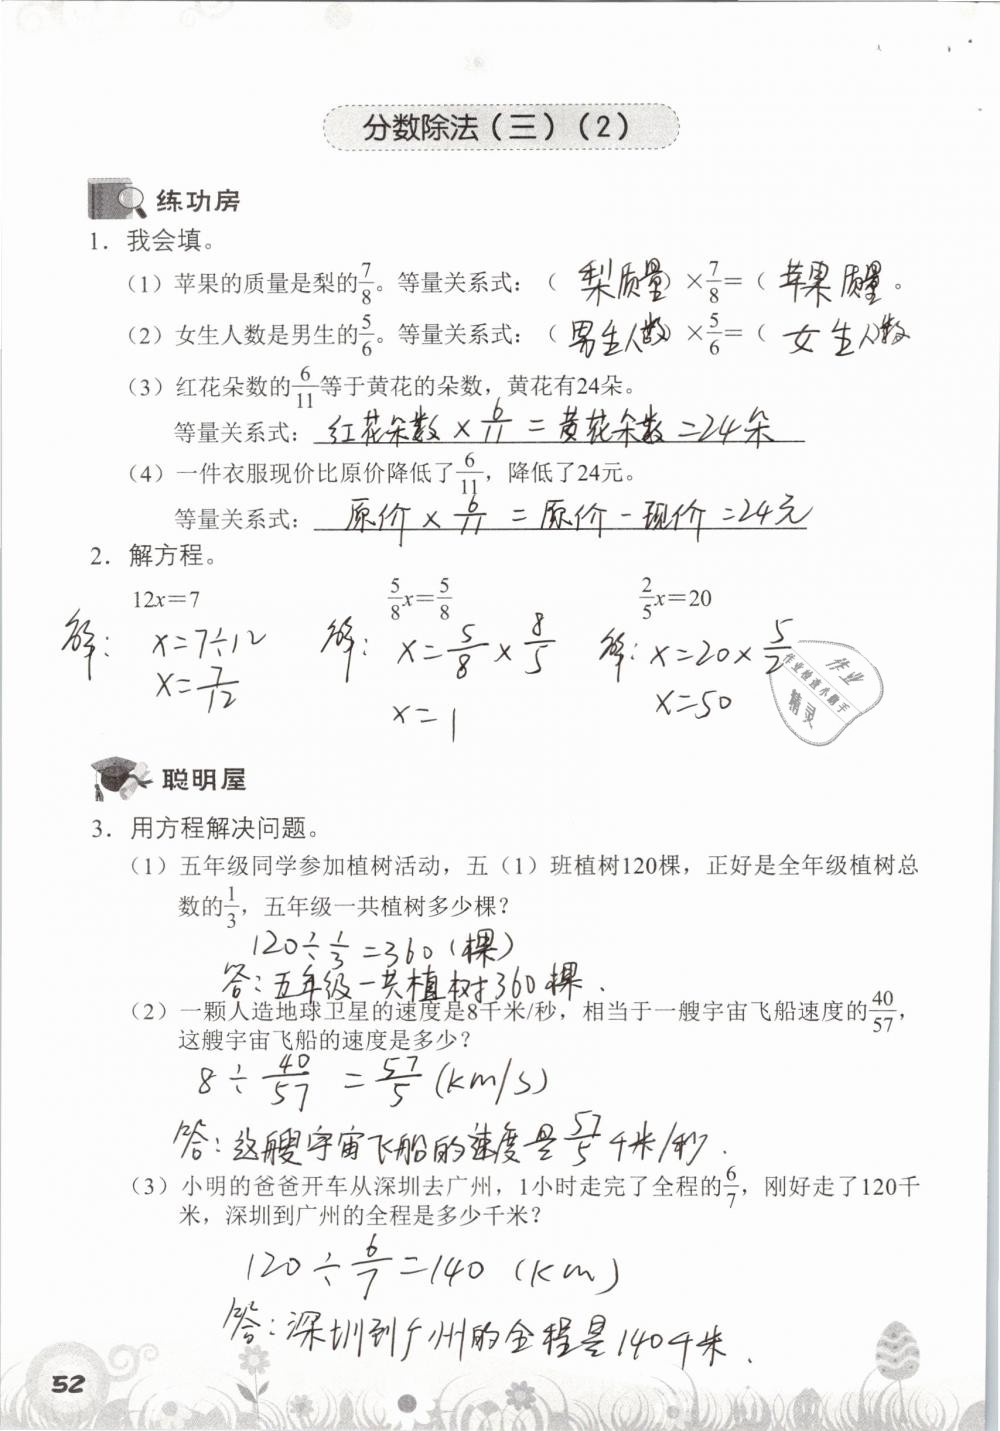 分数除法（三）（2）
练功房
1. 我会填。
（1）苹果的质量是梨的7/8。等量关系式：（ 梨质量）×7/8=（ 苹果质量 。
（2）女生人数是男生的5/6。等量关系式：（男生人数）×5/6=（ 女生人数
（3）红花朵数的6/11等于黄花的朵数，黄花有24朵。
等量关系式：红花朵数×6/11=黄花朵数=24朵
（4）一件衣服现价比原价降低了6/11，降低了24元。
等量关系式：原价×6/11=原价-现价=24元
2. 解方程。
12x=7 5/8x=5/8 2/5x=20
解： x=7÷12 解： x=5/8×8/5 解：x=20×5/2
x=7/12 x=1 x=50
作业
作业检查小助手
精灵
聪明屋
3. 用方程解决问题。
（1）五年级同学参加植树活动，五（1）班植树120棵，正好是全年级植树总
数的1/3，五年级一共植树多少棵？
120÷1/3=360（棵）
答：五年级一共植树360棵.
（2）一颗人造地球卫星的速度是8千米/秒，相当于一艘宇宙飞船速度的40/57，
这艘宇宙飞船的速度是多少？
8÷40/57=57/5(km/s)
答：这艘宇宙飞船的速度是57/5千米/秒.
（3）小明的爸爸开车从深圳去广州，1小时走完了全程的6/7，刚好走了120千
米，深圳到广州的全程是多少千米？
120÷6/7=140 (km)
答：深圳到广州的全程是140千米.
52